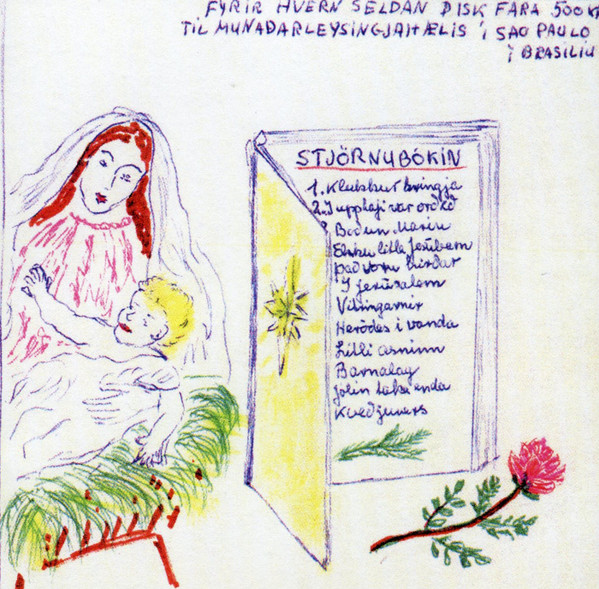 FYRIR HVERN SELDAN DISK FARA 500 K
TIL MUNAÐARLEYSINGJAHÆLIS Í SAO PAULO
Í BRASILIU
STJÖRNUBÓKIN
1. Klukkur hringja
2. Í upphafi var orðið
3 Boðun Maríu
Elsku litla Jesúbarn
Það voru hirðar
Í Jerúsalem
Vitringarnir
Heródes í vanda
Litli asninn
Barnalag
Jólin taka enda
Kveðjuvers